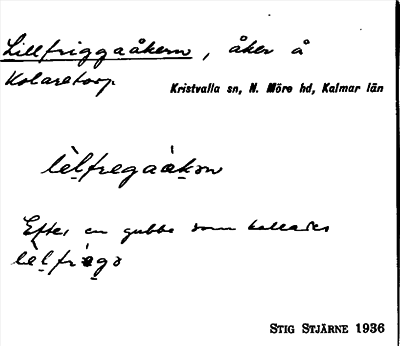 Lillfriggaåkern, åker å
Kolaretorp
Kristvalla sn, N. Möre hd, Kalmar län
lɛ̀l̠fregaák̠ɔn
Efter en gubbe som kallades
lɛ̀l̠frígɔ
STIG STJÄRNE 1936